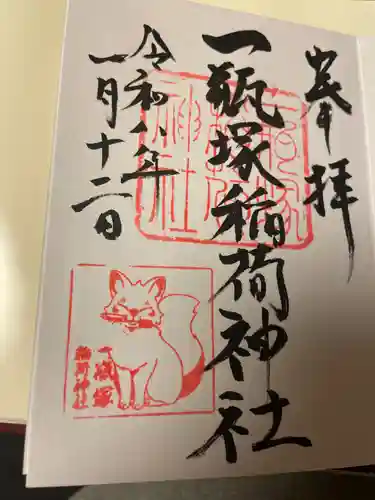 奉拝
一瓶塚稲荷神社
令和八年
一月十二日
一瓶塚
稲荷神社